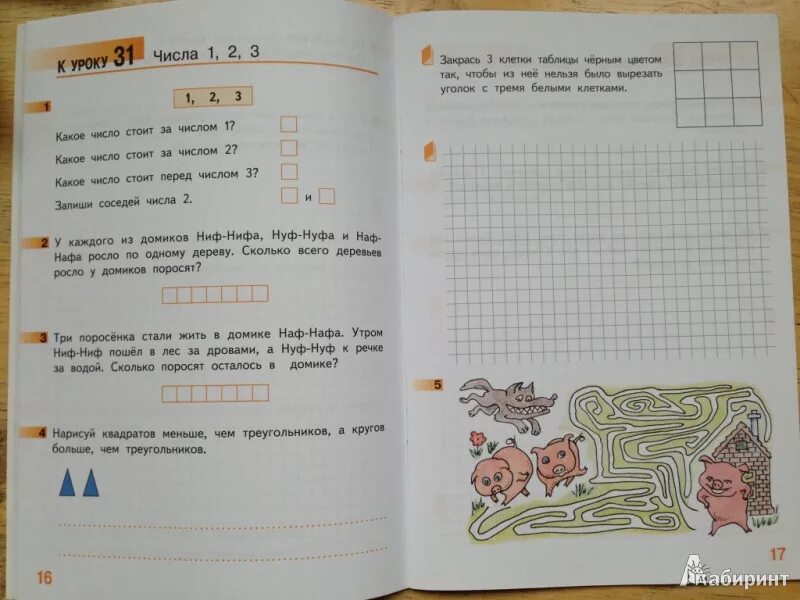 К УРОКУ 31 Числа 1, 2, 3
1
1, 2, 3
Какое число стоит за числом 1?
Какое число стоит за числом 2?
Какое число стоит перед числом 3?
Запиши соседей числа 2. и
2 У каждого из домиков Ниф-Нифа, Нуф-Нуфа и Наф-
Нафа росло по одному дереву. Сколько всего деревьев
росло у домиков поросят?
3 Три поросёнка стали жить в домике Наф-Нафа. Утром
Ниф-Ниф пошёл в лес за дровами, а Нуф-Нуф к речке
за водой. Сколько поросят осталось в домике?
4 Нарисуй квадратов меньше, чем треугольников, а кругов
больше, чем треугольников.
16
Закрась 3 клетки таблицы чёрным цветом
так, чтобы из неё нельзя было вырезать
уголок с тремя белыми клетками.
5
17
Лабиринт